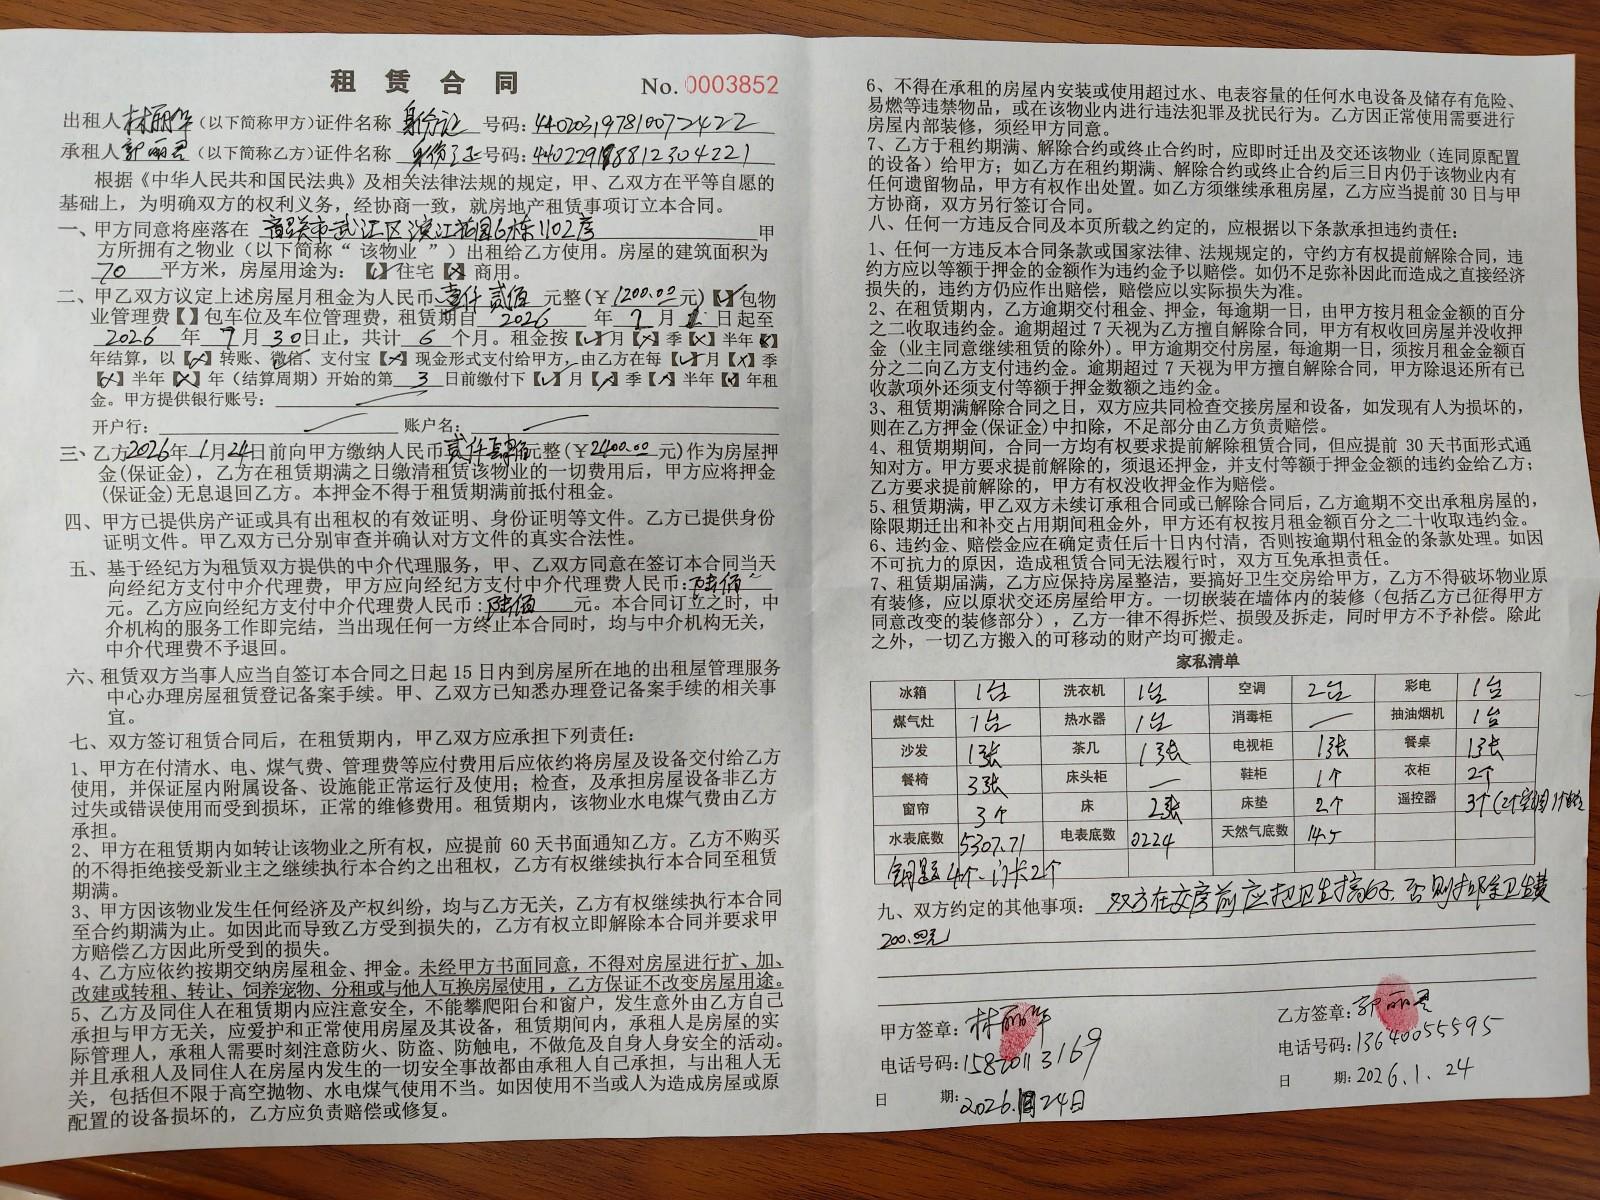 租 赁 合 同 No. 0003852
出租人林丽华(以下简称甲方)证件名称 身份证 号码:440203197810072422
承租人郭丽君(以下简称乙方)证件名称 身份证 号码:
根据《中华人民共和国民法典》及相关法律法规的规定,甲、乙双方在平等自愿的
基础上,为明确双方的权利义务,经协商一致,就房地产租赁事项订立本合同。
一、甲方同意将座落在 韶关市武江区滨江花园6栋1102房 甲
方所拥有之物业(以下简称“该物业”)出租给乙方使用。房屋的建筑面积为
70 平方米,房屋用途为:【√】住宅【×】商用。
二、甲乙双方议定上述房屋月租金为人民币 壹仟贰佰 元整(¥1200.00元)【√】包物
业管理费【 】包车位及车位管理费,租赁期自 2026 年 月 日起至
2026 年 7 月 30日止,共计 6 个月。租金按【√】月【×】季【×】半年【×】
年结算,以【×】转账、微信、支付宝【×】现金形式支付给甲方,由乙方在每【√】月【×】季
【×】半年【×】年(结算周期)开始的第 3 日前缴付下【√】月【×】季【×】半年【×】年租
金。甲方提供银行账号:
开户行: 账户名:
三、乙方2026年 1月24日前向甲方缴纳人民币贰仟肆佰元整(¥2400.00 元)作为房屋押
金(保证金),乙方在租赁期满之日缴清租赁该物业的一切费用后,甲方应将押金
(保证金)无息退回乙方。本押金不得于租赁期满前抵付租金。
四、甲方已提供房产证或具有出租权的有效证明、身份证明等文件。乙方已提供身份
证明文件。甲乙双方已分别审查并确认对方文件的真实合法性。
五、基于经纪方为租赁双方提供的中介代理服务,甲、乙双方同意在签订本合同当天
向经纪方支付中介代理费,甲方应向经纪方支付中介代理费人民币:陆佰
元。乙方应向经纪方支付中介代理费人民币:陆佰 元。本合同订立之时,中
介机构的服务工作即完结,当出现任何一方终止本合同时,均与中介机构无关,
中介代理费不予退回。
六、租赁双方当事人应当自签订本合同之日起 15 日内到房屋所在地的出租屋管理服务
中心办理房屋租赁登记备案手续。甲、乙双方已知悉办理登记备案手续的相关事
宜。
七、双方签订租赁合同后,在租赁期内,甲乙双方应承担下列责任:
1、甲方在付清水、电、煤气费、管理费等应付费用后应依约将房屋及设备交付给乙方
使用,并保证屋内附属设备、设施能正常运行及使用;检查,及承担房屋设备非乙方
过失或错误使用而受到损坏,正常的维修费用。租赁期内,该物业水电煤气费由乙方
承担。
2、甲方在租赁期内如转让该物业之所有权,应提前 60 天书面通知乙方。乙方不购买
的不得拒绝接受新业主之继续执行本合约之出租权,乙方有权继续执行本合同至租赁
期满。
3、甲方因该物业发生任何经济及产权纠纷,均与乙方无关,乙方有权继续执行本合同
至合约期满为止。如因此而导致乙方受到损失的,乙方有权立即解除本合同并要求甲
方赔偿乙方因此所受到的损失。
4、乙方应依约按期交纳房屋租金、押金。未经甲方书面同意,不得对房屋进行扩、加、
改建或转租、转让、饲养宠物、分租或与他人互换房屋使用,乙方保证不改变房屋用途。
5、乙方及同住人在租赁期内应注意安全,不能攀爬阳台和窗户,发生意外由乙方自己
承担与甲方无关,应爱护和正常使用房屋及其设备,租赁期间内,承租人是房屋的实
际管理人,承租人需要时刻注意防火、防盗、防触电,不做危及自身人身安全的活动。
并且承租人及同住人在房屋内发生的一切安全事故都由承租人自己承担,与出租人无
关,包括但不限于高空抛物、水电煤气使用不当。如因使用不当或人为造成房屋或原
配置的设备损坏的,乙方应负责赔偿或修复。
6、不得在承租的房屋内安装或使用超过水、电表容量的任何水电设备及储存有危险、
易燃等违禁物品,或在该物业内进行违法犯罪及扰民行为。乙方因正常使用需要进行
房屋内部装修,须经甲方同意。
7、乙方于租约期满、解除合约或终止合约时,应即时迁出及交还该物业(连同原配置
的设备)给甲方;如乙方在租约期满、解除合约或终止合约后三日内仍于该物业内有
任何遗留物品,甲方有权作出处置。如乙方须继续承租房屋,乙方应当提前 30 日与甲
方协商,双方另行签订合同。
八、任何一方违反合同及本页所载之约定的,应根据以下条款承担违约责任:
1、任何一方违反本合同条款或国家法律、法规规定的,守约方有权提前解除合同,违
约方应以等额于押金的金额作为违约金予以赔偿。如仍不足弥补因此而造成之直接经济
损失的,违约方仍应作出赔偿,赔偿应以实际损失为准。
2、在租赁期内,乙方逾期交付租金、押金,每逾期一日,由甲方按月租金金额的百分
之二收取违约金。逾期超过 7 天视为乙方擅自解除合同,甲方有权收回房屋并没收押
金(业主同意继续租赁的除外)。甲方逾期交付房屋,每逾期一日,须按月租金金额百
分之二向乙方支付违约金。逾期超过 7 天视为甲方擅自解除合同,甲方除退还所有已
收款项外还须支付等额于押金数额之违约金。
3、租赁期满解除合同之日,双方应共同检查交接房屋和设备,如发现有人为损坏的,
则在乙方押金(保证金)中扣除,不足部分由乙方负责赔偿。
4、租赁期期间,合同一方均有权要求提前解除租赁合同,但应提前 30 天书面形式通
知对方。甲方要求提前解除的,须退还押金,并支付等额于押金金额的违约金给乙方;
乙方要求提前解除的,甲方有权没收押金作为赔偿。
5、租赁期满,甲乙双方未续订承租合同或已解除合同后,乙方逾期不交出承租房屋的,
除限期迁出和补交占用期间租金外,甲方还有权按月租金额百分之二十收取违约金。
6、违约金、赔偿金应在确定责任后十日内付清,否则按逾期付租金的条款处理。如因
不可抗力的原因,造成租赁合同无法履行时,双方互免承担责任。
7、租赁期届满,乙方应保持房屋整洁,要搞好卫生交房给甲方,乙方不得破坏物业原
有装修,应以原状交还房屋给甲方。一切嵌装在墙体内的装修(包括乙方已征得甲方
同意改变的装修部分),乙方一律不得拆烂、损毁及拆走,同时甲方不予补偿。除此
之外,一切乙方搬入的可移动的财产均可搬走。
家私清单
冰箱 1台 洗衣机 1台 空调 2台 彩电 1台
煤气灶 1台 热水器 1台 消毒柜 抽油烟机 1台
沙发 1张 茶几 1张 电视柜 1张 餐桌 1张
餐椅 3张 床头柜 鞋柜 1个 衣柜 2个
窗帘 3个 床 2张 床垫 2个 遥控器 3个(2个空调1个
水表底数 5307.71 电表底数 0224 天然气底数 14.5
钥匙 4个、门卡2个
九、双方约定的其他事项:双方在交房前应把卫生搞好,否则扣除卫生费
200.00元
甲方签章:林丽华
乙方签章:郭丽君
电话号码:15820113169
电话号码:13640055595
日 期:2026.1月24日
日 期:2026.1.24